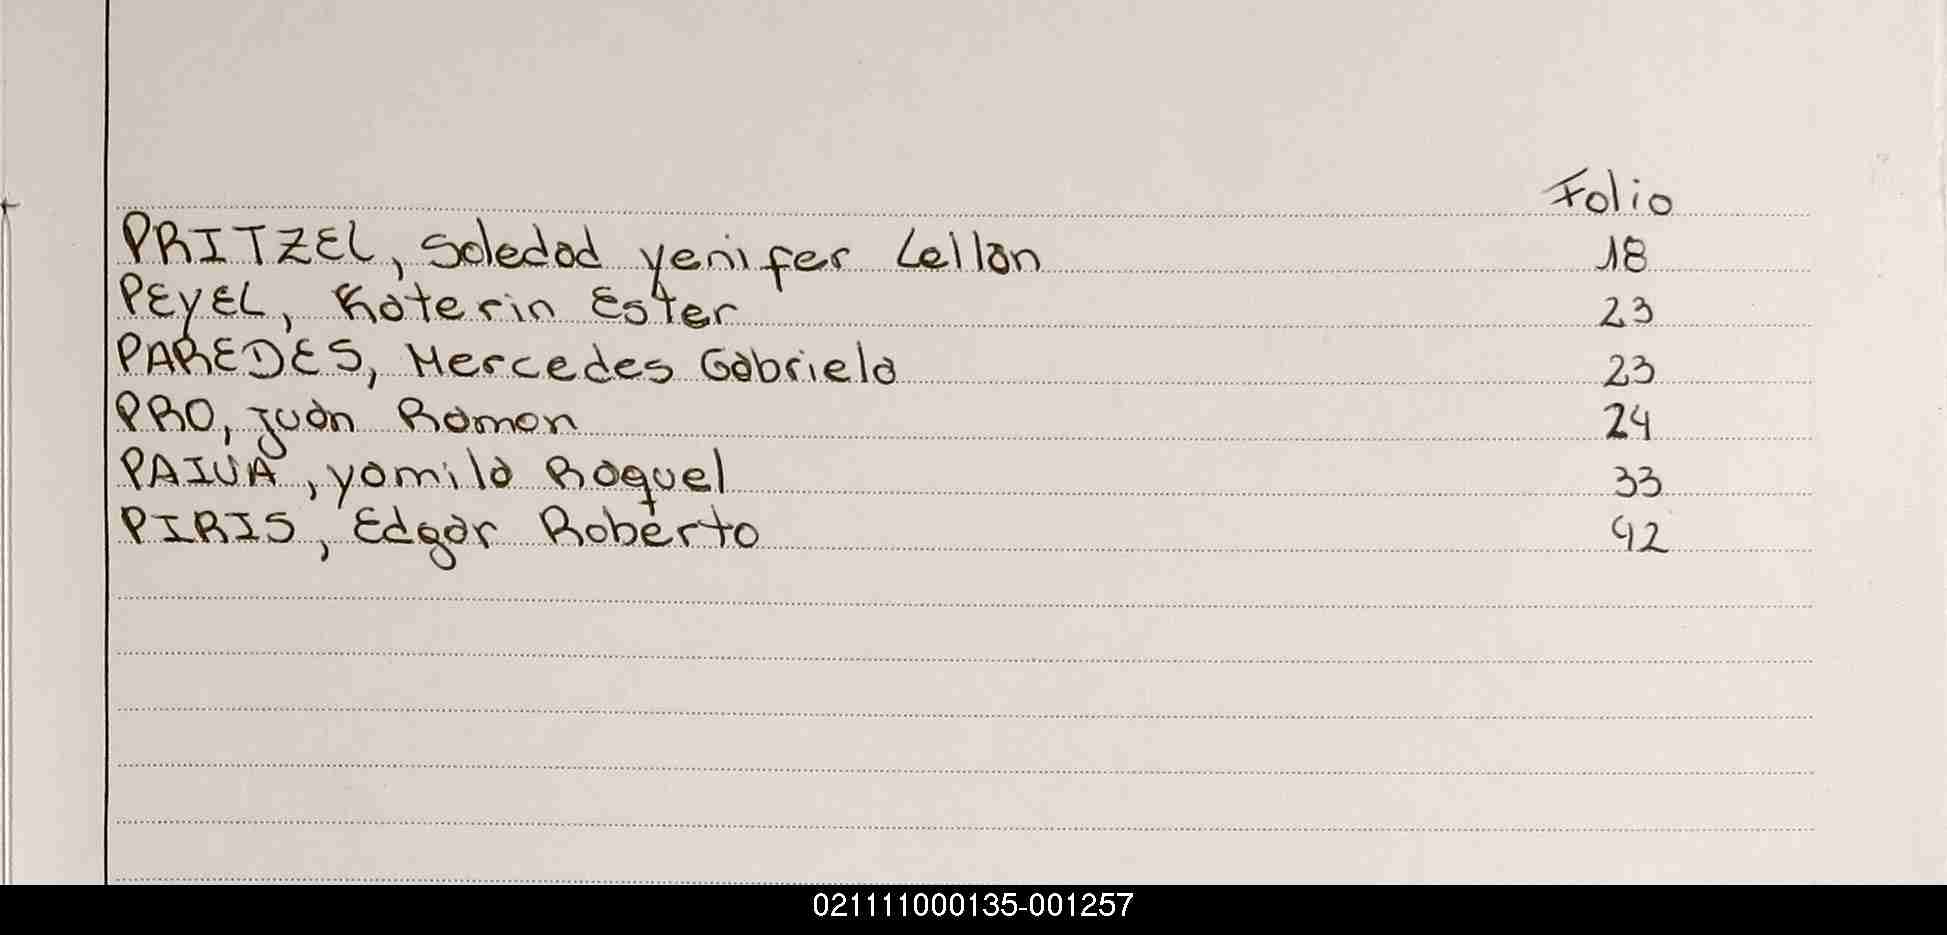 Folio
PRITZEL, Soledad yenifer Lellan 18
PEYEL, Katerin Ester 23
PAREDES, Mercedes Gabriela 23
PRO, juan Ramon 24
PAIVA, yamila Raquel 33
PIRIS, Edgar Roberto 42
021111000135-001257